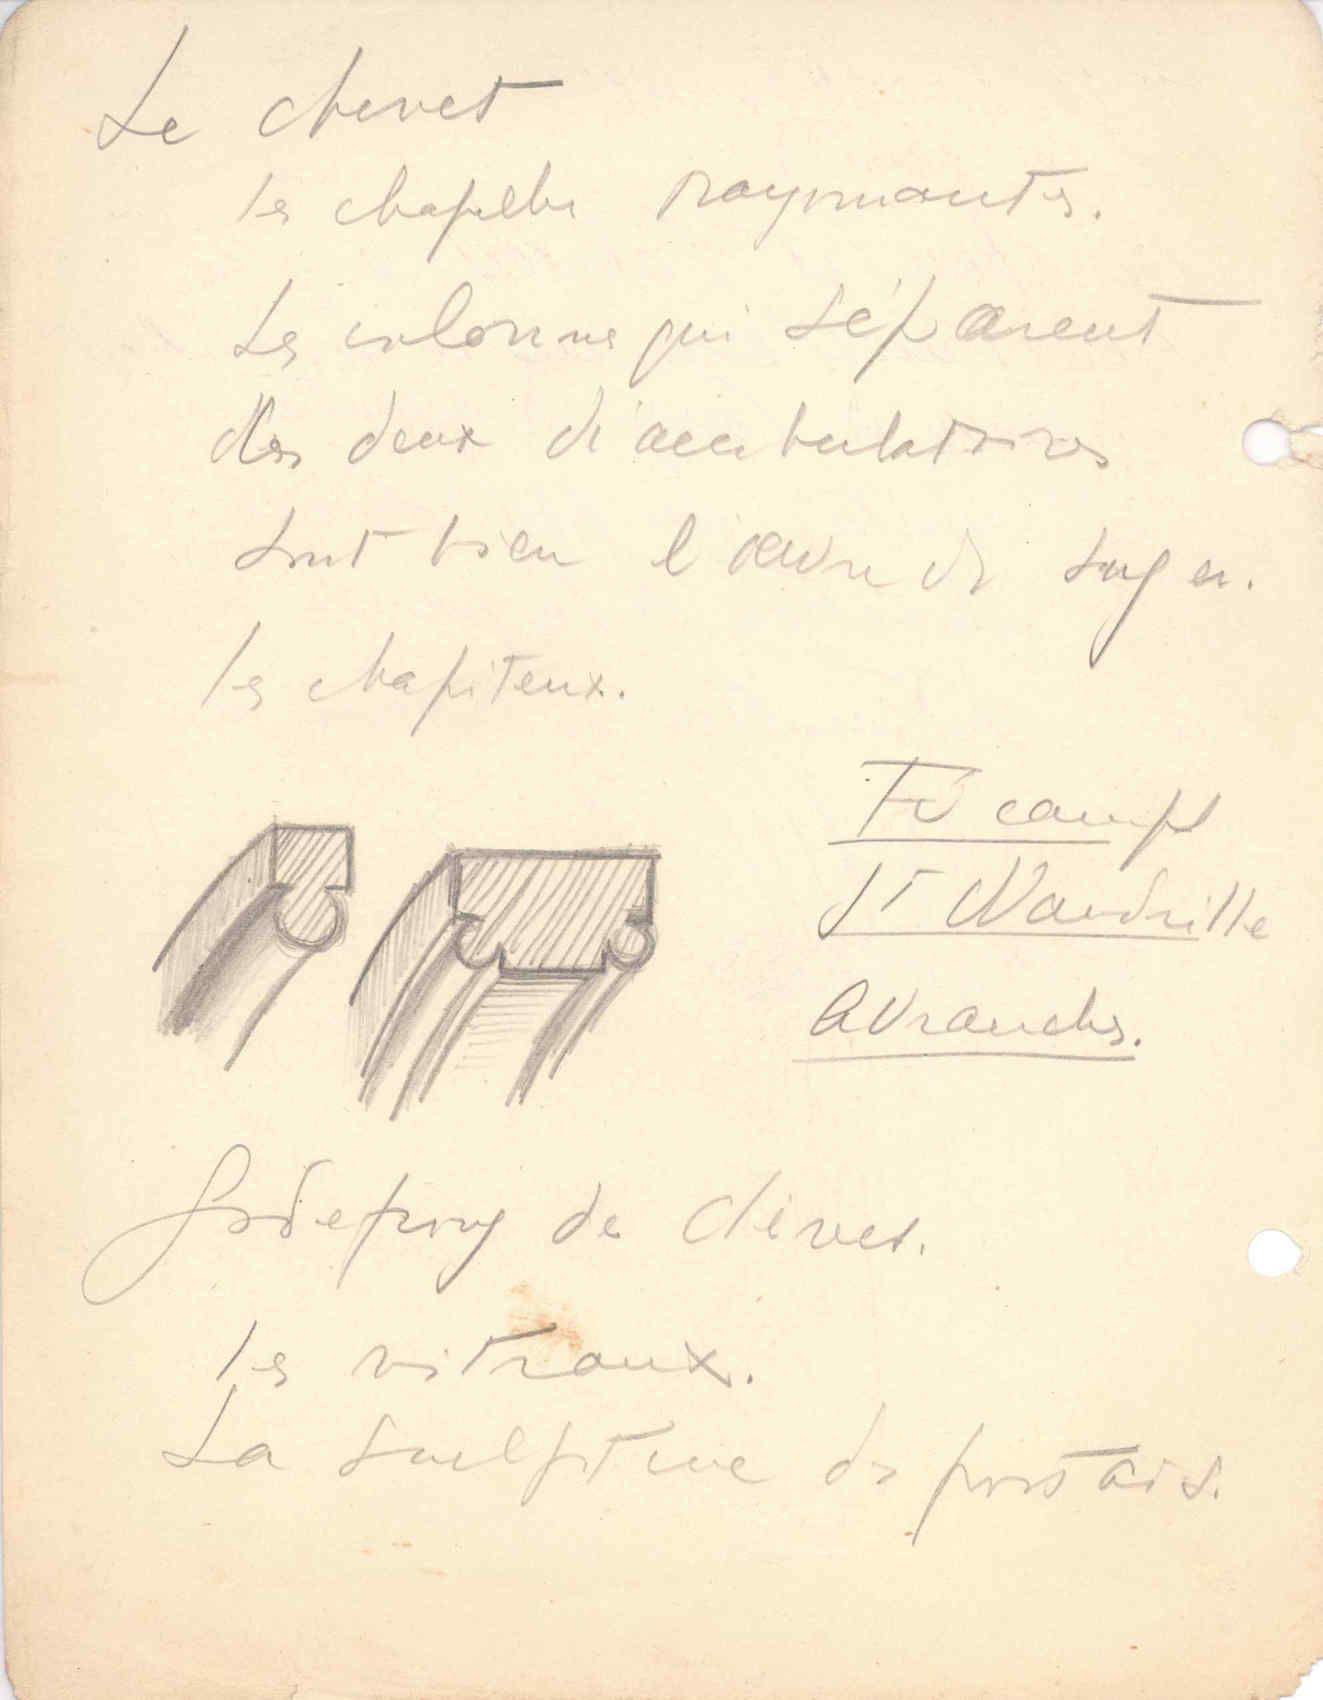 Le chevet
les chapelles rayonnantes.
Les colonnes qui séparent
les deux déambulatoires
sont bien l'œuvre de Suger.
les chapiteaux.
Fécamp
St Wandrille
Avranches.
Godefroy de Claires.
les vitraux.
La sculpture des portails.